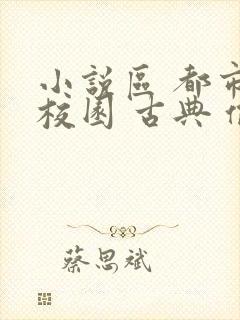 小說區 都市
校園 古典
蔡思斌